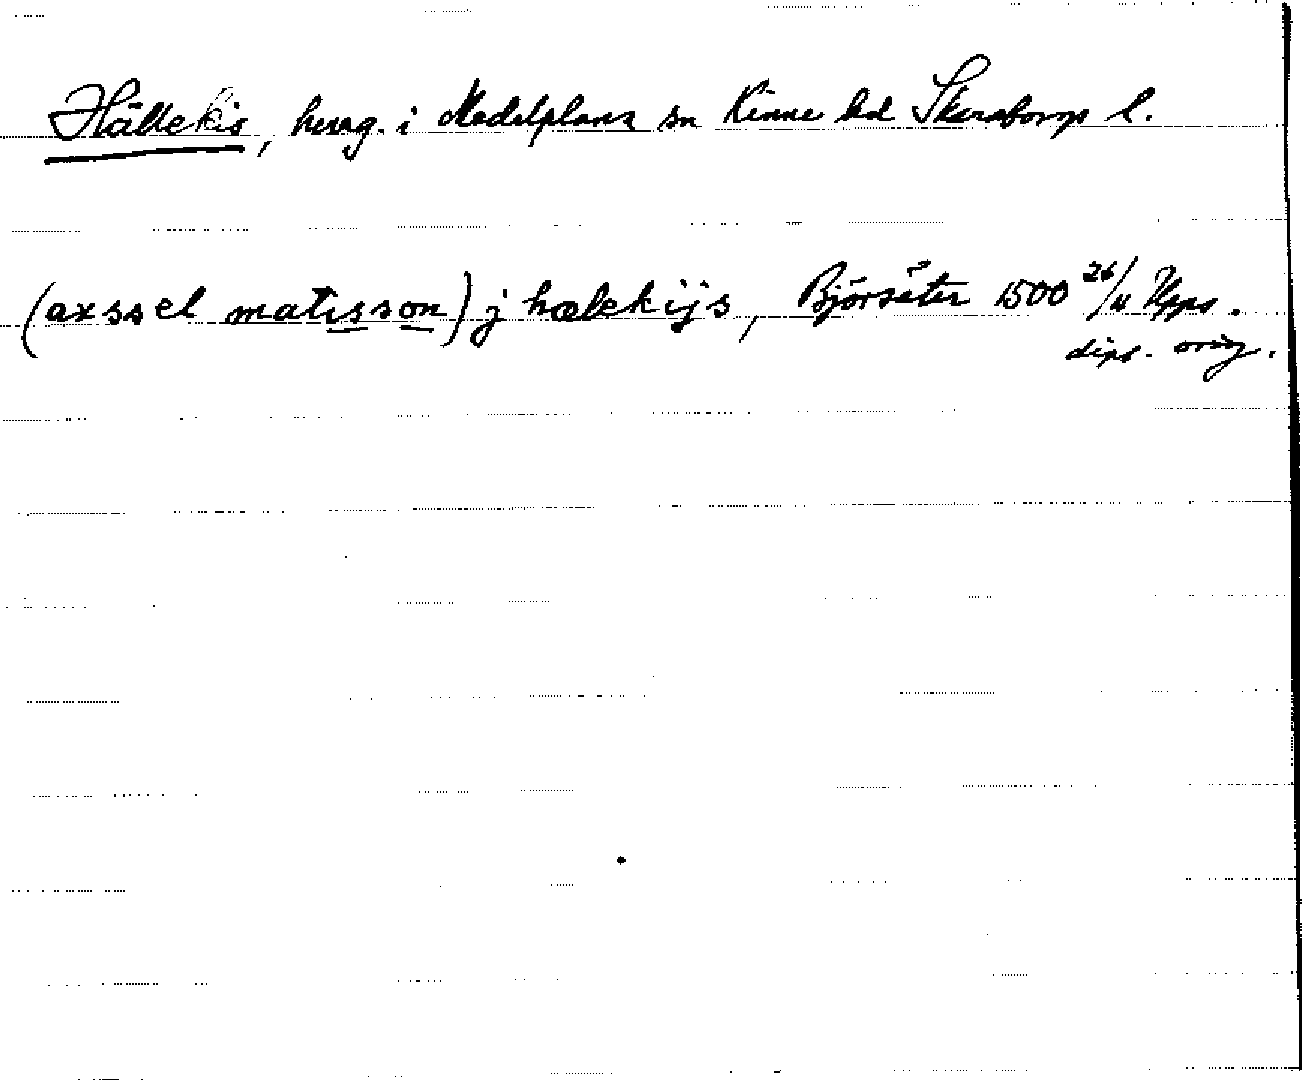 Hällekis, herrg. i Medelplana sn Kinne hd Skaraborgs l.
(axssel matisson) j hælekijs, Björsäter 1500 26/11 Upps.
dipl. orig.